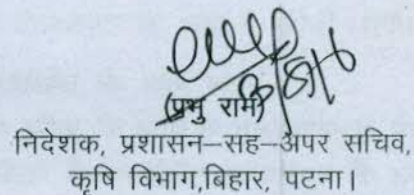 (प्रभु राम)
निदेशक, प्रशासन–सह–अपर सचिव,
कृषि विभाग,बिहार, पटना।